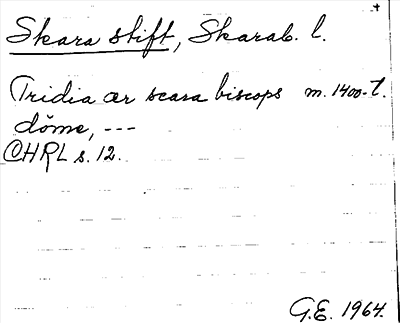 Skara stift, Skarab. l.
Tridia ær scara biscops m. 1400-t.
döme, ---
OHRL s. 12.
G.E. 1964.